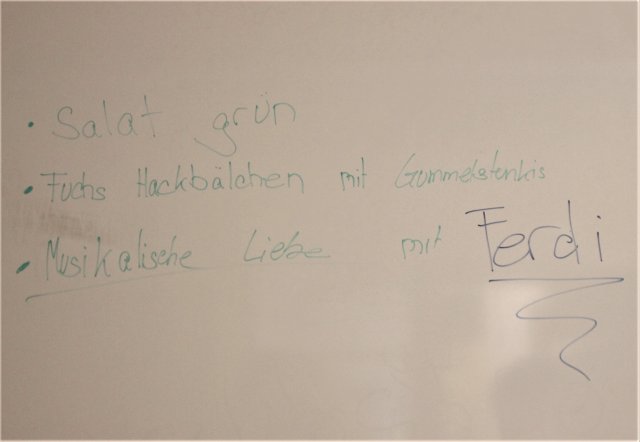 • Salat grün
• Fuchs Hackbälchen mit
• Musikalische Liebe mit Ferdi